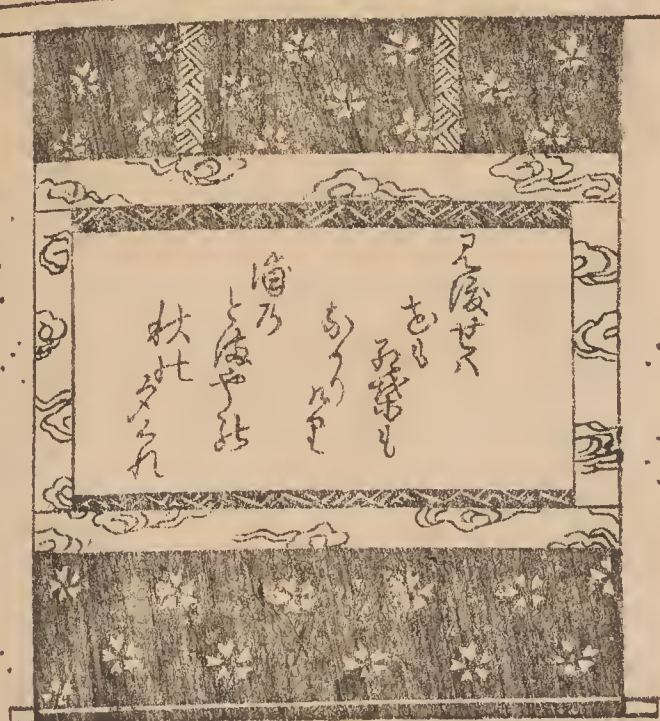 見渡せハ
花も
紅葉も
なかり
け里
浦乃
とまやの
秋の
夕くれ